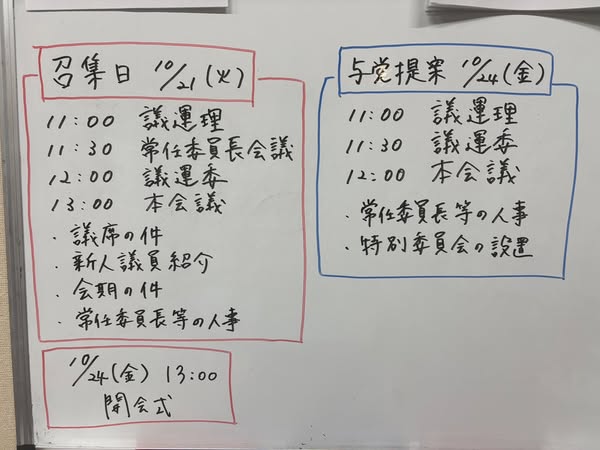 召集日 10/21(火)
11:00 議運理
11:30 常任委員長会議
12:00 議運委
13:00 本会議
・議席の件
・新人議員紹介
・会期の件
・常任委員長等の人事
10/24(金) 13:00
開会式
与党提案 10/24(金)
11:00 議運理
11:30 議運委
12:00 本会議
・常任委員長等の人事
・特別委員会の設置